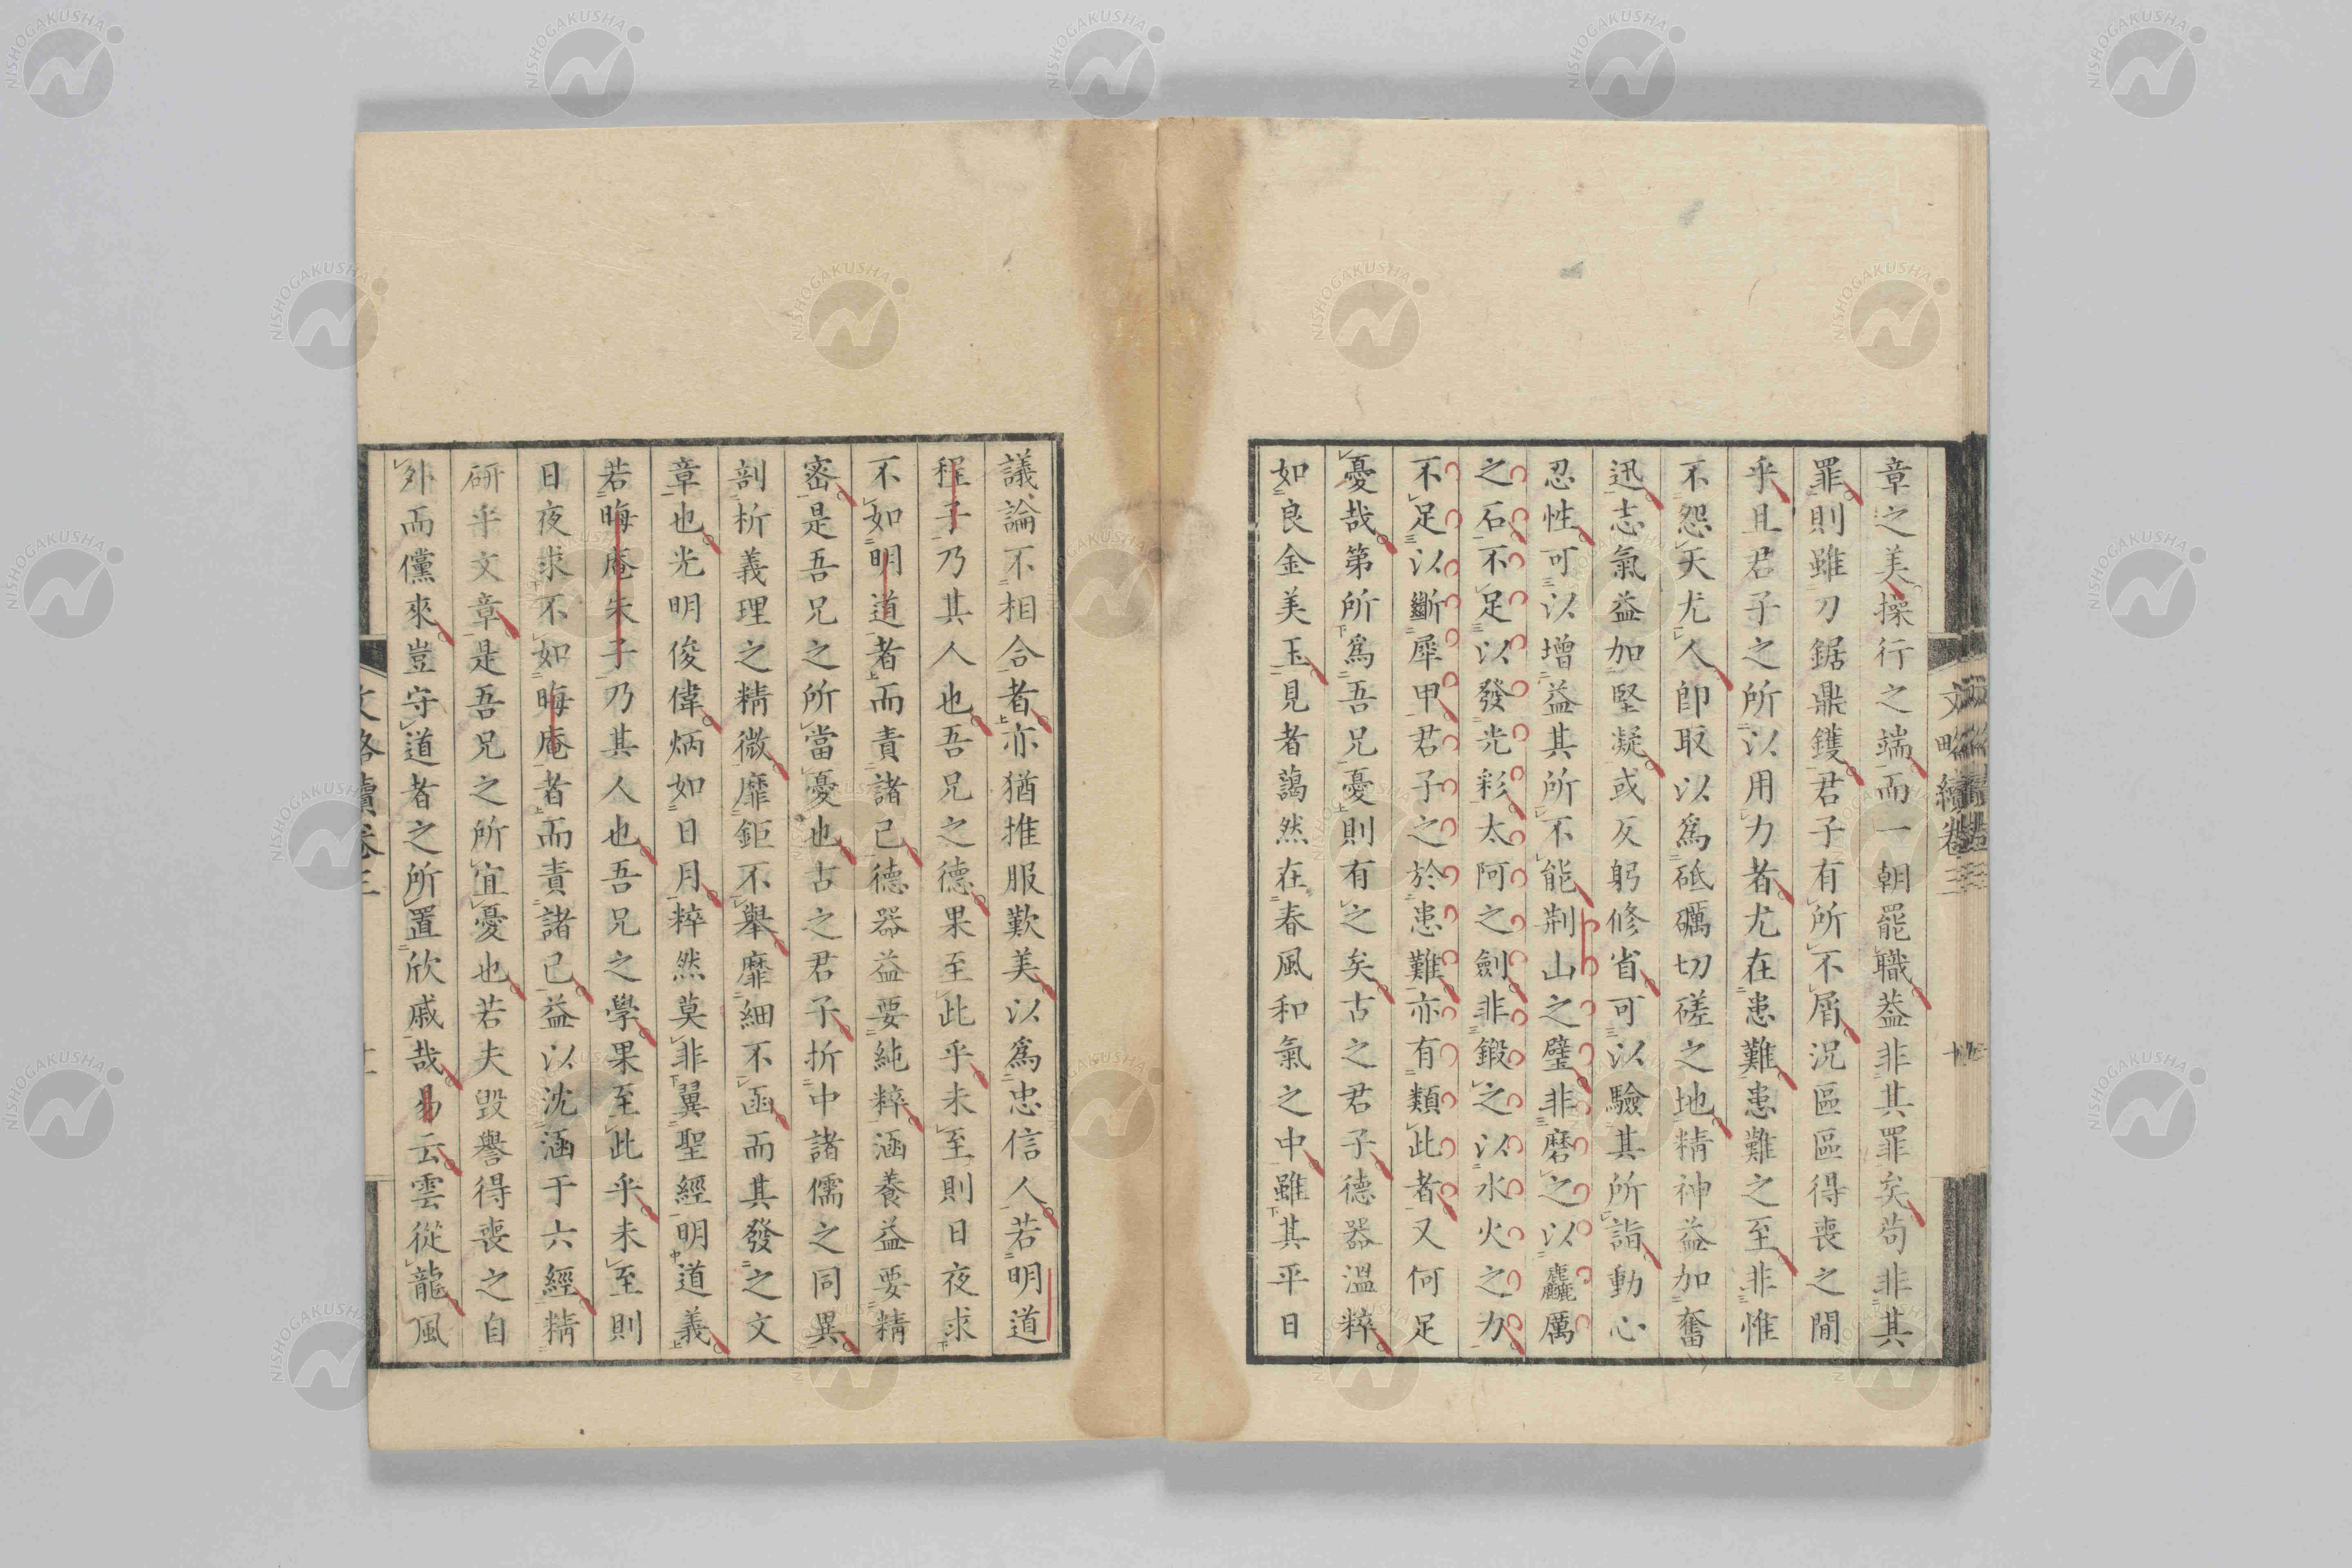 章之美操行之端而一朝罷職葢非其罪矣苟非其
罪則雖刀鋸鼎鑊君子有所不屑況區區得喪之間
乎且君子之所以用力者尤在患難患難之至非惟
不怨天尤人卽取以爲砥礪切磋之地精神益加奮
迅志氣益加堅凝或反躬修省可以驗其所詣動心
忍性可以增益其所不能荆山之璧非磨之以麤厲
之石不足以發光彩太阿之劍非鍛之以水火之力
不足以斷犀甲君子之於患難亦有類此者又何足
憂哉第所爲吾兄憂則有之矣古之君子德器溫粹
如良金美玉見者藹然在春風和氣之中雖其平日
議論不相合者亦猶推服歎美以爲忠信人若明道
程子乃其人也吾兄之德果至此乎未至則日夜求
不如明道者而責諸己德器益要純粹涵養益要精
密是吾兄之所當憂也古之君子折中諸儒之同異
剖析義理之精微靡鉅不舉靡細不函而其發之文
章也光明俊偉炳如日月粹然莫非翼聖經明道義
若晦庵朱子乃其人也吾兄之學果至此乎未至則
日夜求不如晦庵者而責諸己益以沈涵于六經精
研乎文章是吾兄之所宜憂也若夫毀譽得喪之自
外而儻來豈守道者之所置欣戚哉易云雲從龍風
文略續卷三
文略續卷三
NISHOGAKUSHA